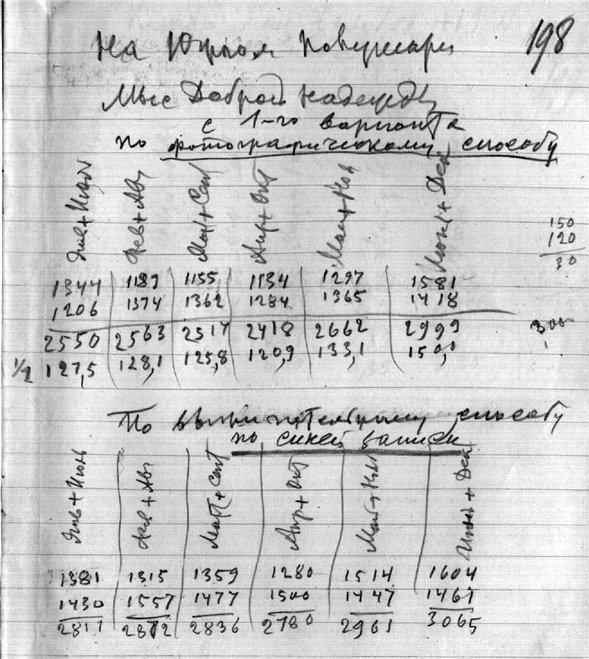 198
На Южном полушарии
Мыс Доброй Надежды
с 1-го варианта
по фотографическому способу
Янв + Июль Фев + Авг Март + Сент Апр + Окт Май + Ноя Июнь + Дек
150
120
30
1344 1189 1155 1134 1297 1581
1206 1374 1362 1284 1365 1418
2550 2563 2517 2418 2662 2999
300
1/2 127,5 128,1 125,8 120,9 133,1 150,0
По вычислительному способу
по синей записи
Янв + Июль Фев + Авг Март + Сент Апр + Окт Май + Ноя Июнь + Дек
1381 1315 1359 1280 1514 1604
1430 1557 1477 1500 1447 1461
2811 2872 2836 2780 2961 3065